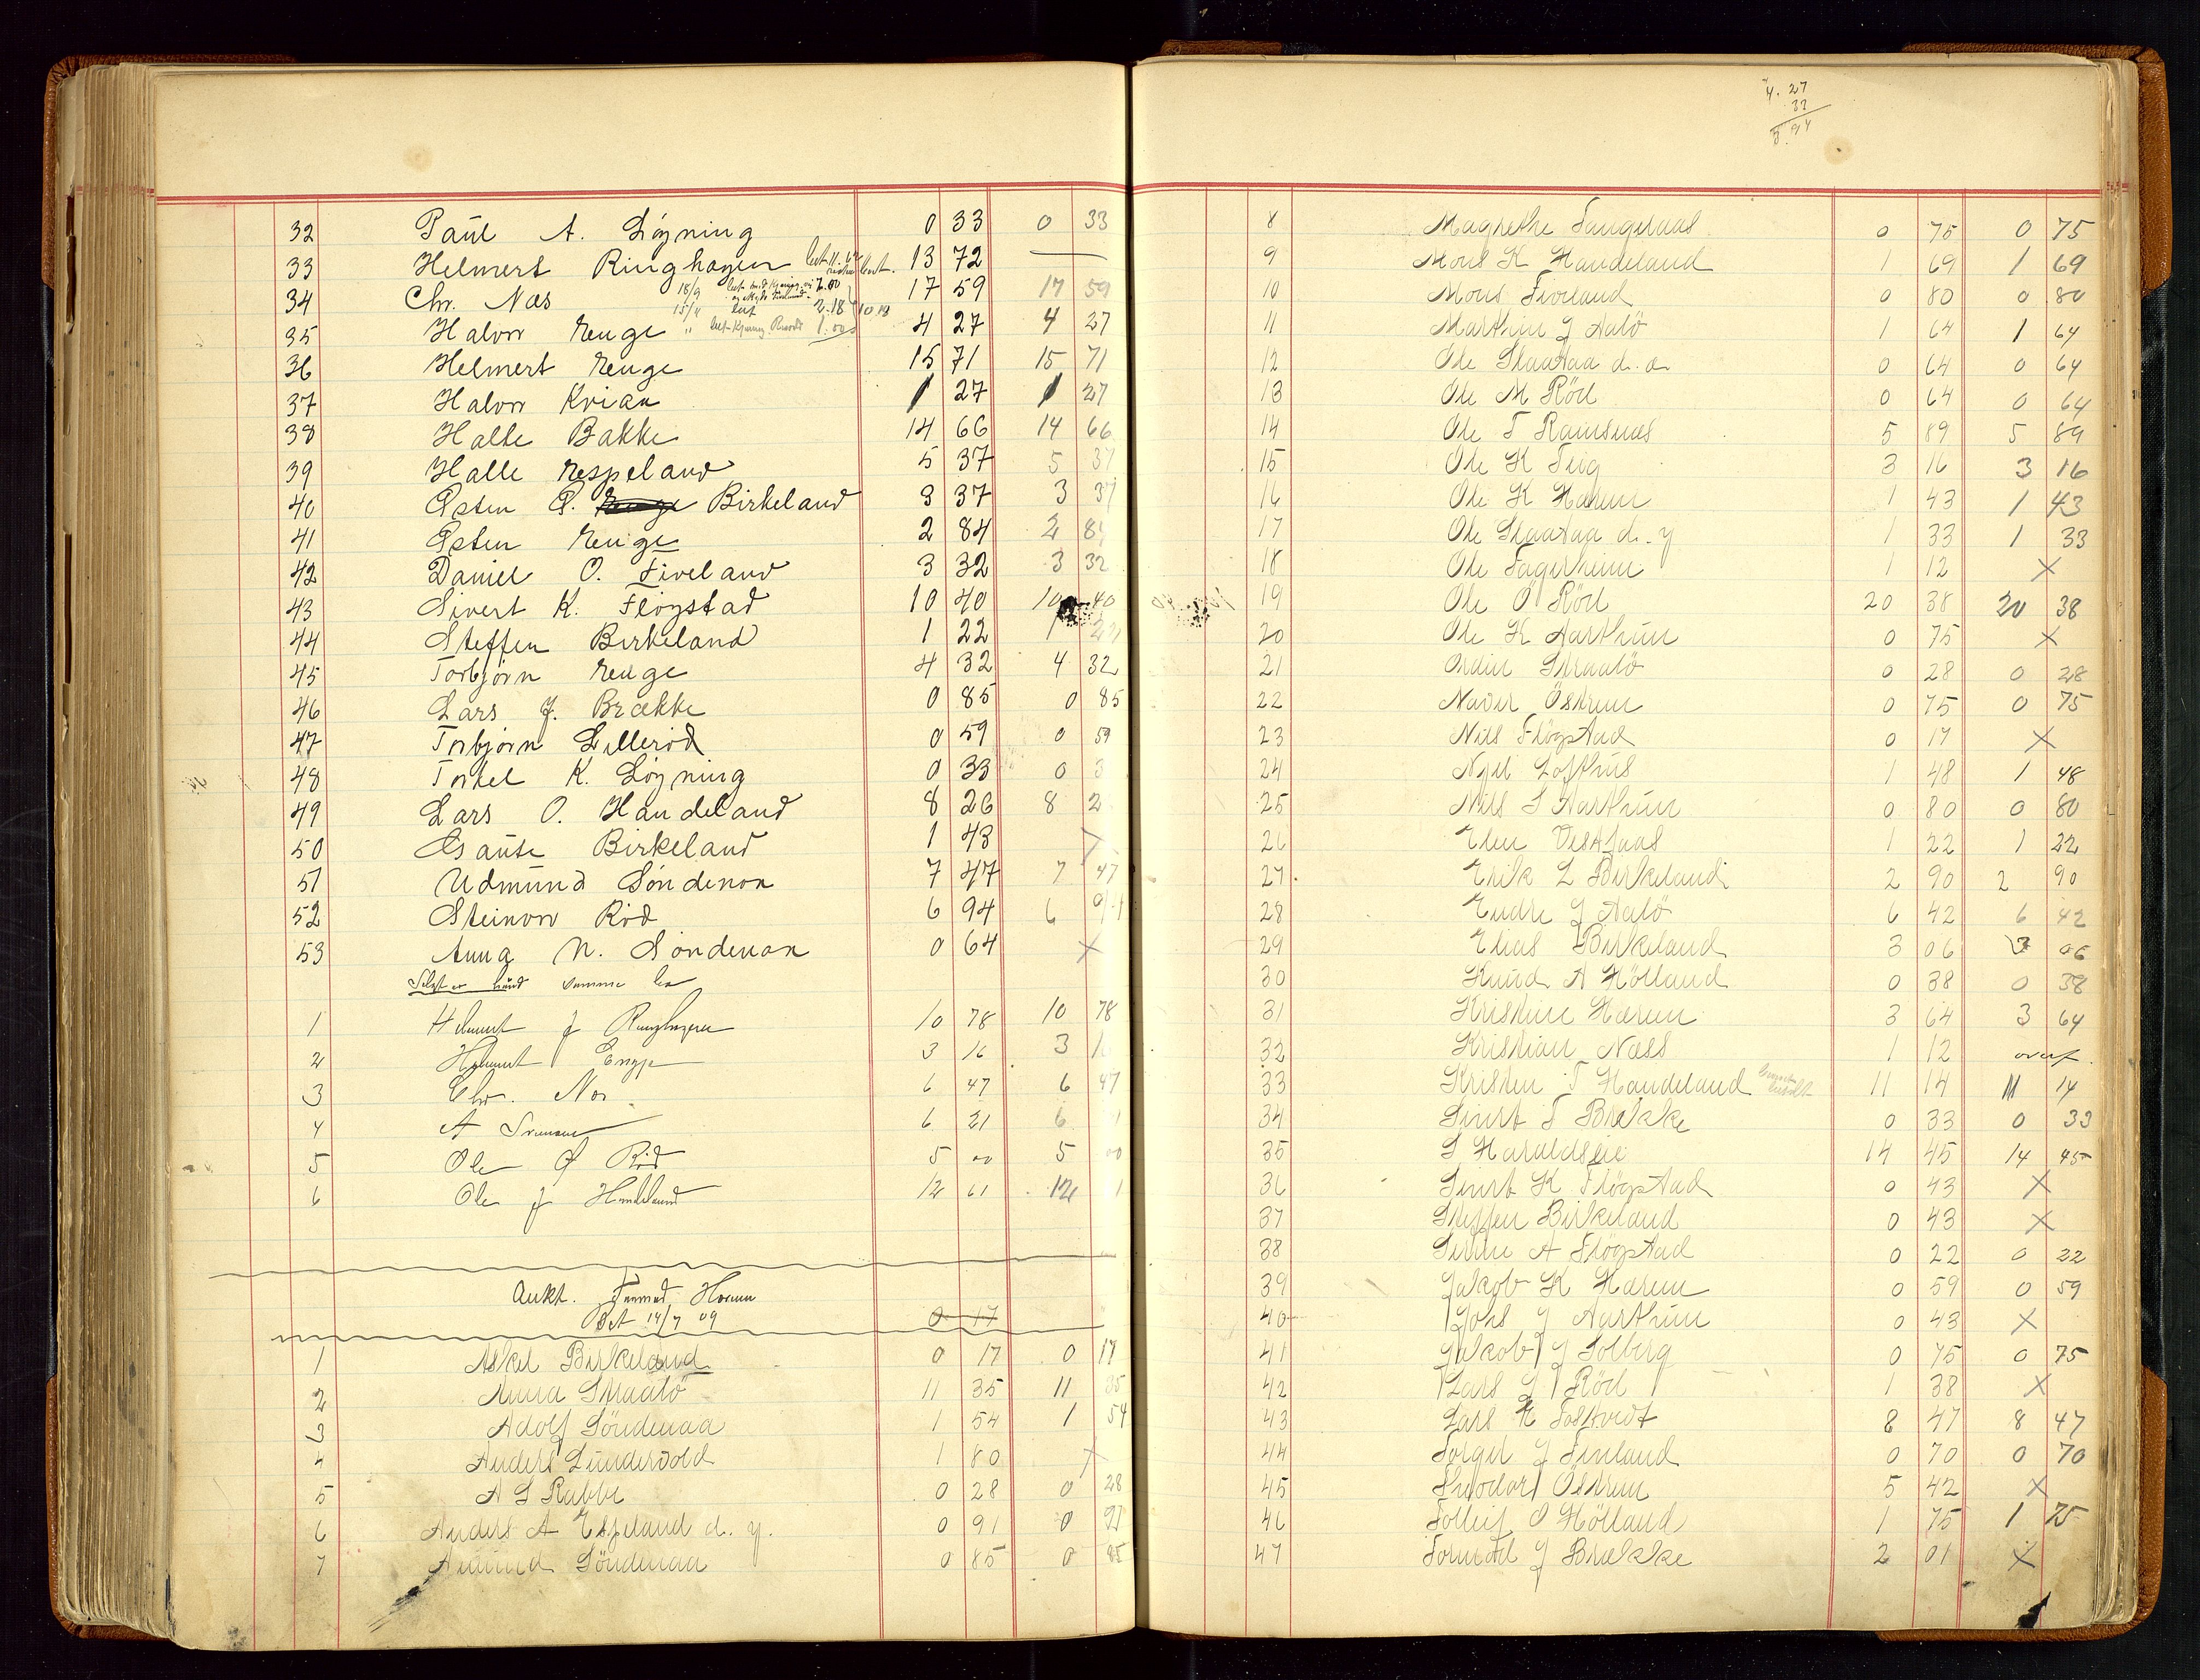 32 Paul A. Løyning 0 33 0 33
33 Helmert Ringhagen 13 72
34 Chr. Næs 17 59 17 59
35 Halvor Enge 4 27 4 27
36 Helmert Enge 15 71 15 71
37 Halvor Kvian 1 27 1 27
38 Halle Bakke 14 66 14 66
39 Halle Espeland 5 37 5 37
40 Østen P. Birkeland 3 37 3 37
41 Østen Enge 2 84 2 84
42 Daniel O. Fiveland 3 32 3 32
43 Sivert K. Fløgstad 10 40 10 40
44 Steffen Birkeland 1 22 1 22
45 Torbjørn Enge 4 32 4 32
46 Lars J. Brække 0 85 0 85
47 Torbjørn Lillerød 0 59 0 59
48 Torkel K. Løyning 0 33 0 3
49 Lars O. Handeland 8 26 8 2
50 Gaute Birkeland 1 43 X
51 Udmund Søndenaa 7 47 7 47
52 Steinar Rød 6 94 6 94
53 Anna N. Søndenaa 0 64 X
1 Helmert J Ringhagen 10 78 10 78
2 Helmert Enge 3 16 3 1
3 Chr. Næs 6 47 6 47
4 A 6 21 6 1
5 Ole Ø Rød 5 00 5 00
6 Ole J Handeland 12 61 12 1
Aukt. Tormod Hærem
Bet 14/7 09 0 17
1 Askel Birkeland 0 17 0 17
2 Anna Straalø 11 35 11 35
3 Adolf Søndenaa 1 54 1 54
4 Anders Lundevold 1 80 X
5 A S Rabbe 0 28 0 28
6 Anders A Espeland d. y. 0 91 0 91
7 Amund Söndenaa 0 85 0 85
4. 27
33
5. 94
8 Magrethe Tangeraas 0 75 0 75
9 Mons K Handeland 1 69 1 69
10 Mons Fiveland 0 80 0 80
11 Martin J Aalö 1 64 1 64
12 Ole Slaataa d. e. 0 64 0 64
13 Ole M Röd 0 64 0 64
14 Ole T Ramsnæs 5 89 5 89
15 Ole K Teig 3 16 3 16
16 Ole K Hærem 1 43 1 43
17 Ole Slaataa d. y 1 33 1 33
18 Ole Fagerheim 1 12 X
19 Ole Ö Röd 20 38 20 38
20 Ole K Aarthun 0 75 X
21 Ordin Straalö 0 28 0 28
22 Naver Östrem 0 75 0 75
23 Nils Flögstad 0 17 X
24 Njel Lofthus 1 48 1 48
25 Nils S Aarthun 0 80 0 80
26 Elen Vestraas 1 22 1 22
27 Erik L Birkeland 2 90 2 90
28 Endre J Aalö 6 42 6 42
29 Elias Birkeland 3 06 3 06
30 Knud A Hölland 0 38 0 38
31 Kristine Hærem 3 64 3 64
32 Kristian Næss 1 12 overf.
33 Kristen T Handeland 11 14 11 14
34 Sivert T Brække 0 33 0 33
35 S Haraldseie 14 45 14 45
36 Sivert K Flögstad 0 43 X
37 Steffen Birkeland 0 43 X
38 Sivert A Flögstad 0 22 0 22
39 Jakob K Hærem 0 59 0 59
40 Johs J Aarthun 0 43 X
41 Jakob J Solberg 0 75 0 75
42 Lars J Röd 1 38 X
43 Lars K Tostvedt 8 47 8 47
44 Torger J Fivland 0 70 0 70
45 Theodor Östrem 5 42 X
46 Tolleif O Hölland 1 75 1 75
47 Tormod J Brække 2 01 X